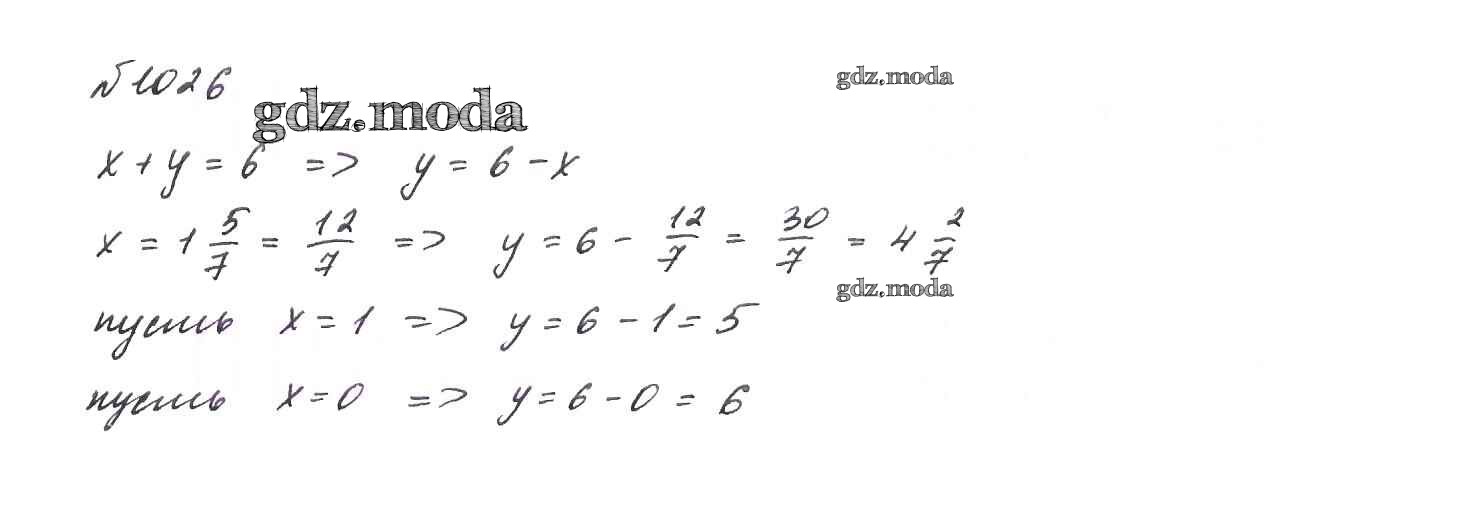 №1026
gdz.moda
gdz.moda
x + y = 6 => y = 6 - x
x = 1 5/7 = 12/7 => y = 6 - 12/7 = 30/7 = 4 2/7
gdz.moda
пусть x = 1 => y = 6 - 1 = 5
пусть x = 0 => y = 6 - 0 = 6